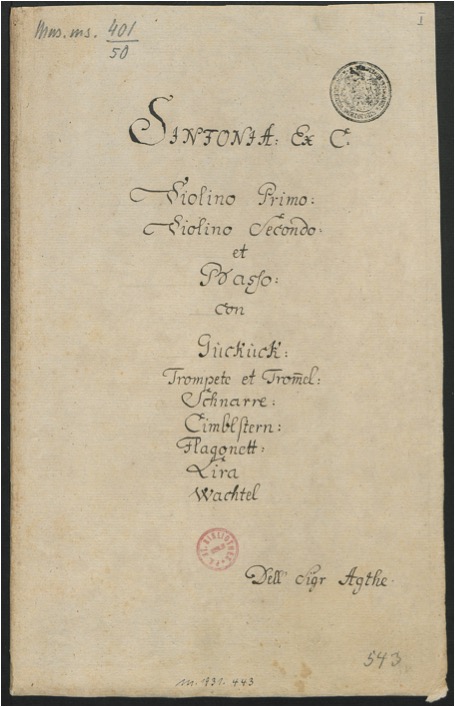 Mus. ms. 401
50
I
SINFONIA: Ex C.
Violino Primo:
Violino Secondo.
et
Basso:
con
Gückück:
Trompete et Trom̄el:
Schnarre:
Cimblstern:
Flagonett:
Lira
Wachtel
Dell' Sigr Agthe.
543